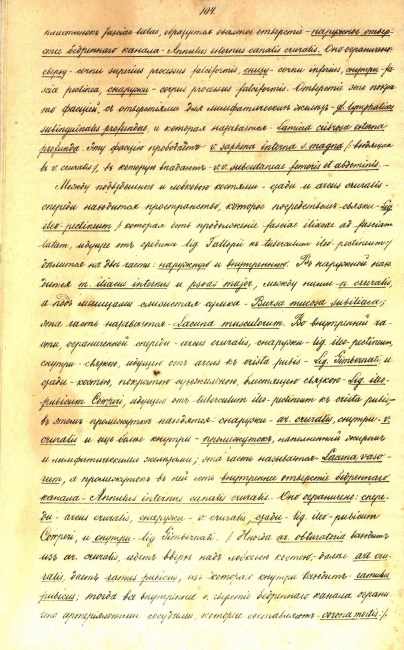 104
пластинокъ fasciae latae, образуется овальное отверстіе - наружное отвер-
стіе бедреннаго канала - Annulus externus canalis cruralis. Оно ограничено:
сверху - cornu superius processus falciformis, снизу - cornu inferius, снутри - fa-
scia pectinea, снаружи - corpus processus falciformis. Отверстіе это покры-
то фасціей, съ отверстіями для лимфатическихъ железъ - gl. lymphaticae
subinguinales profundae, и которая называется - Lamina cribrosa externa
profunda. Эту фасцію прободаетъ v. saphena interna s. magna (: вводящая
въ v. cruralis:), въ которую впадаютъ - v.v. subcutaneae femoris et abdominis. -
Между подвздошной и лобковою костями - сзади и arcus cruralis -
спереди находится пространство, которое посредствомъ связки - Lig.
ileo-pectineum (: которая есть продолженіе fasciae iliacae ad fasciam
latam, идущее отъ средины lig. Fallopii къ tuberculum ileo-pectineum:)
дѣлится на двѣ части: наружную и внутреннюю. Въ наружной нахо-
дится m. iliacus internus и psoas major, между ними - n. cruralis,
а подъ мышцами слизистая сумка - Bursa mucosa subiliaca;
эта часть называется - Lacuna musculorum. Во внутренней ча-
сти, ограниченной спереди - arcus cruralis, снаружи - lig. ileo-pectineum,
снутри - связкою, идущею отъ arcus къ crista pubis - Lig. Gimbernati, и
сзади - костью, покрытою сухожильною, блестящею связкою - Lig. ileo-
pubicum Cooperi, идущею отъ tuberculum ileo-pectineum къ crista pubis -
въ этомъ промежуткѣ находятся: снаружи - ar. cruralis, снутри - v.
cruralis и еще болѣе кнутри - промежутокъ, наполненный жиромъ
и лимфатическими железами; эта часть называется - Lacuna vaso-
rum, а промежутокъ въ ней есть внутреннее отверстіе бедреннаго
канала - Annulus internus canalis cruralis. Оно ограничено: спере-
ди - arcus cruralis, снаружи - v. cruralis, сзади - lig. ileo-pubicum
Cooperi, и снутри - lig. Gimbernati. (: Иногда ar. obturatoria выходитъ
изъ ar. cruralis, идетъ вверхъ надъ лобковою костью; далѣе ar. cru-
ralis, даетъ ramus pubicus, изъ котораго снутри выходитъ - ramus
pubicus; тогда все внутреннее отверстіе бедреннаго канала ограни-
чено артеріальными сосудами, которые составляютъ - corona mortis:).